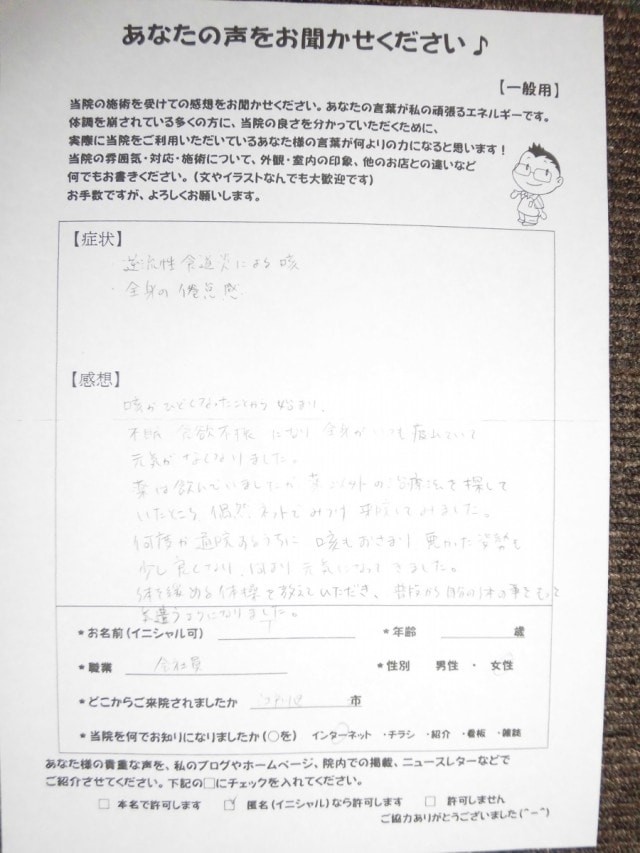 あなたの声をお聞かせください♪
【一般用】
当院の施術を受けての感想をお聞かせください。あなたの言葉が私の頑張るエネルギーです。
体調を崩されている多くの方に、当院の良さを分かっていただくために、
実際に当院をご利用いただいているあなた様の言葉が何よりの力になると思います！
当院の雰囲気・対応・施術について、外観・室内の印象、他のお店との違いなど
何でもお書きください。（文やイラストなんでも大歓迎です）
お手数ですが、よろしくお願いします。
【症状】
・逆流性食道炎による咳
・全身の倦怠感
【感想】
咳がひどくなったことから始まり、
不眠 食欲不振 になり 全身がいつも疲れていて
元気がなくなりました。
薬は飲んでいましたが 薬以外の治療法を探して
いたところ 偶然 ネットでみつけ 来院してみました。
何度か通院するうちに 咳もおさまり 悪かった姿勢も
少し良くなり、 元気になってきました。
体を緩める体操を教えていただき、 自分の体の事をもっと
気遣うようになりました。
＊お名前（イニシャル可）
＊年齢 歳
＊職業 会社員
＊性別 男性 ・ 女性
＊どこからご来院されましたか 市
＊当院を何でお知りになりましたか（○を） インターネット ・チラシ ・紹介 ・看板 ・雑誌
あなた様の貴重な声を、私のブログやホームページ、院内での掲載、ニュースレターなどで
ご紹介させてください。下記の□にチェックを入れてください。
□ 本名で許可します ☑ 匿名（イニシャル）なら許可します □ 許可しません
ご協力ありがとうございました（＾－＾）